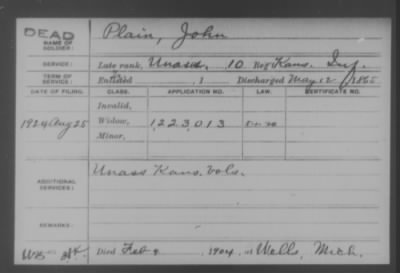 DEAD
NAME OF SOLDIER:
Plain, John
SERVICE:
Late rank, Unass, 10 Reg't Kans. Inf.
TERM OF SERVICE:
Enlisted , 1 Discharged May 12, 1865
DATE OF FILING.
CLASS.
APPLICATION NO.
LAW.
CERTIFICATE NO.
Invalid,
1924 Aug 25
Widow,
1223013
Minor,
ADDITIONAL SERVICES:
Unass Kans. Vols.
REMARKS:
Died Feb 9, 1904, at Wells, Mich.